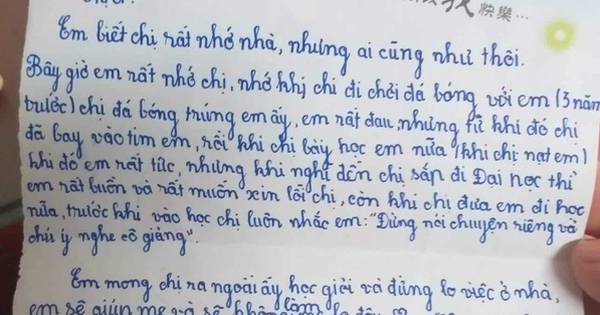 快樂...
Em biết chị rất nhớ nhà, nhưng ai cũng như thôi.
Bây giờ em rất nhớ chị, nhớ khi chị đi chơi đá bóng với em (3 năm
trước) chị đá bóng trúng em ấy, em rất đau, nhưng từ khi đó chị
đã bay vào tim em, rồi khi chị bày học em nữa (khi chị nạt em)
khi đó em rất tức, nhưng khi nghĩ đến chị sắp đi Đại học thì
em rất buồn và rất muốn xin lỗi chị, còn khi chị đưa em đi học
nữa, trước khi vào học chị luôn nhắc em: "Đừng nói chuyện riêng và
chú ý nghe cô giảng".
Em mong chị ra ngoài ấy học giỏi và đừng lo việc ở nhà,
em sẽ giúp mẹ và sẽ không làm